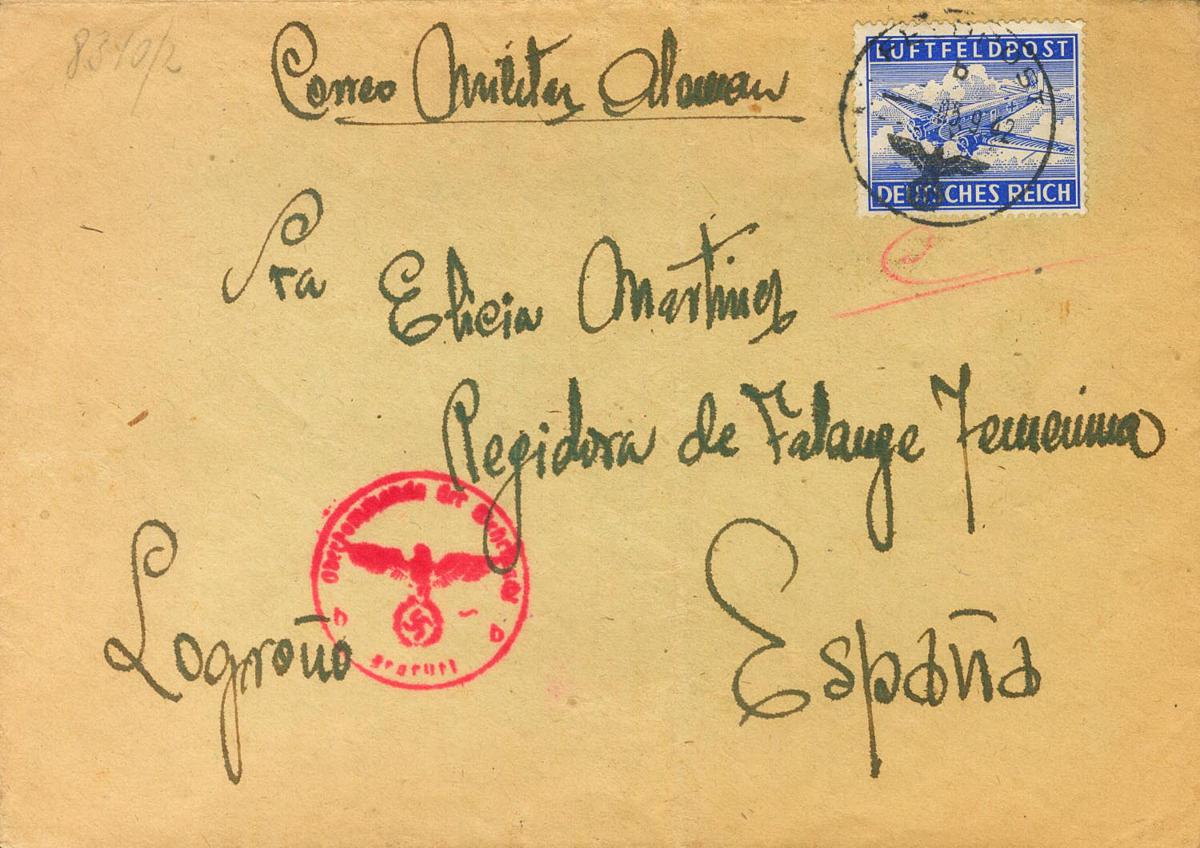 8340/2
Correo Militar Aleman
LUFTFELDPOST
b
9.42
DEUTSCHES REICH
Sra Elicia Martinez
Regidora de Falange Femenina
Oberkommando der Wehrmacht
b b
geprüft
Logroño España